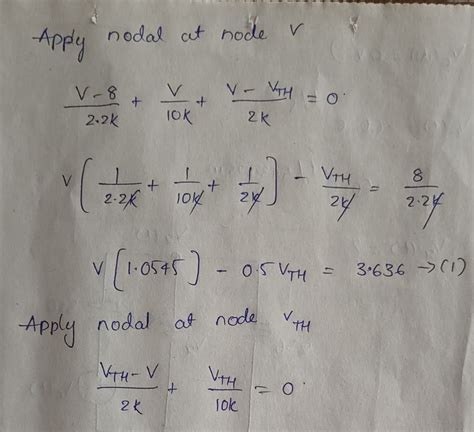 Apply nodal at node V
V-8/2.2k + V/10k + V-V_TH/2k = 0
V[1/2.2k + 1/10k + 1/2k] - V_TH/2k = 8/2.2k
V[1.0545] - 0.5V_TH = 3.636 →(1)
Apply nodal at node V_TH
V_TH-V/2k + V_TH/10k = 0